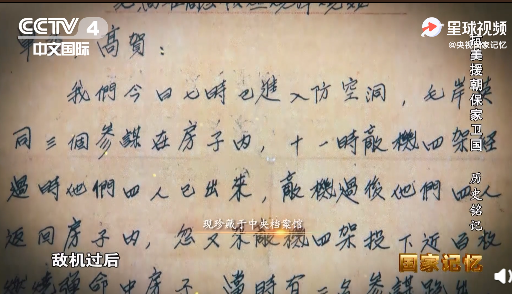 CCTV 4
中文国际
星球视频
@央视国家记忆
抗美援朝保家卫国 历史铭记
高賀：
我們今日七時已進入防空洞，毛岸英
同三個參謀在房子內，十一時敵機四架經
過時他們四人已出來，敵機過後他們四人
返回房子內，忽又來敵機四架投下近百枚
現珍藏于中央档案馆
敌机过后
国家记忆